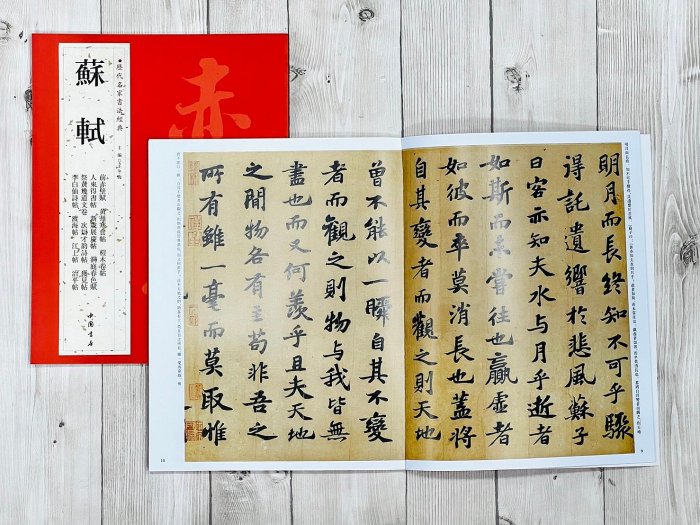 赤
歷代名家書法經典
主編
蘇軾
前赤壁賦 黃州寒食帖 榿木卷帖
人來得書帖 新歲展慶帖 洞庭春色賦
祭黃幾道文卷 次辯才韵詩帖 獲見帖
李白仙詩帖 渡海帖 江上帖 治平帖
中國書店
明月而長終知不可乎驟
得託遺響於悲風蘇子
曰客亦知夫水與月乎逝者
如斯而未嘗往也贏虛者
如彼而卒莫消長也蓋將
自其變者而觀之則天地
9
曾不能以一瞬自其不變
者而觀之則物与我皆無
盡也而又何羨乎且夫天地
之間物各有主苟非吾之
所有雖一毫而莫取惟
10